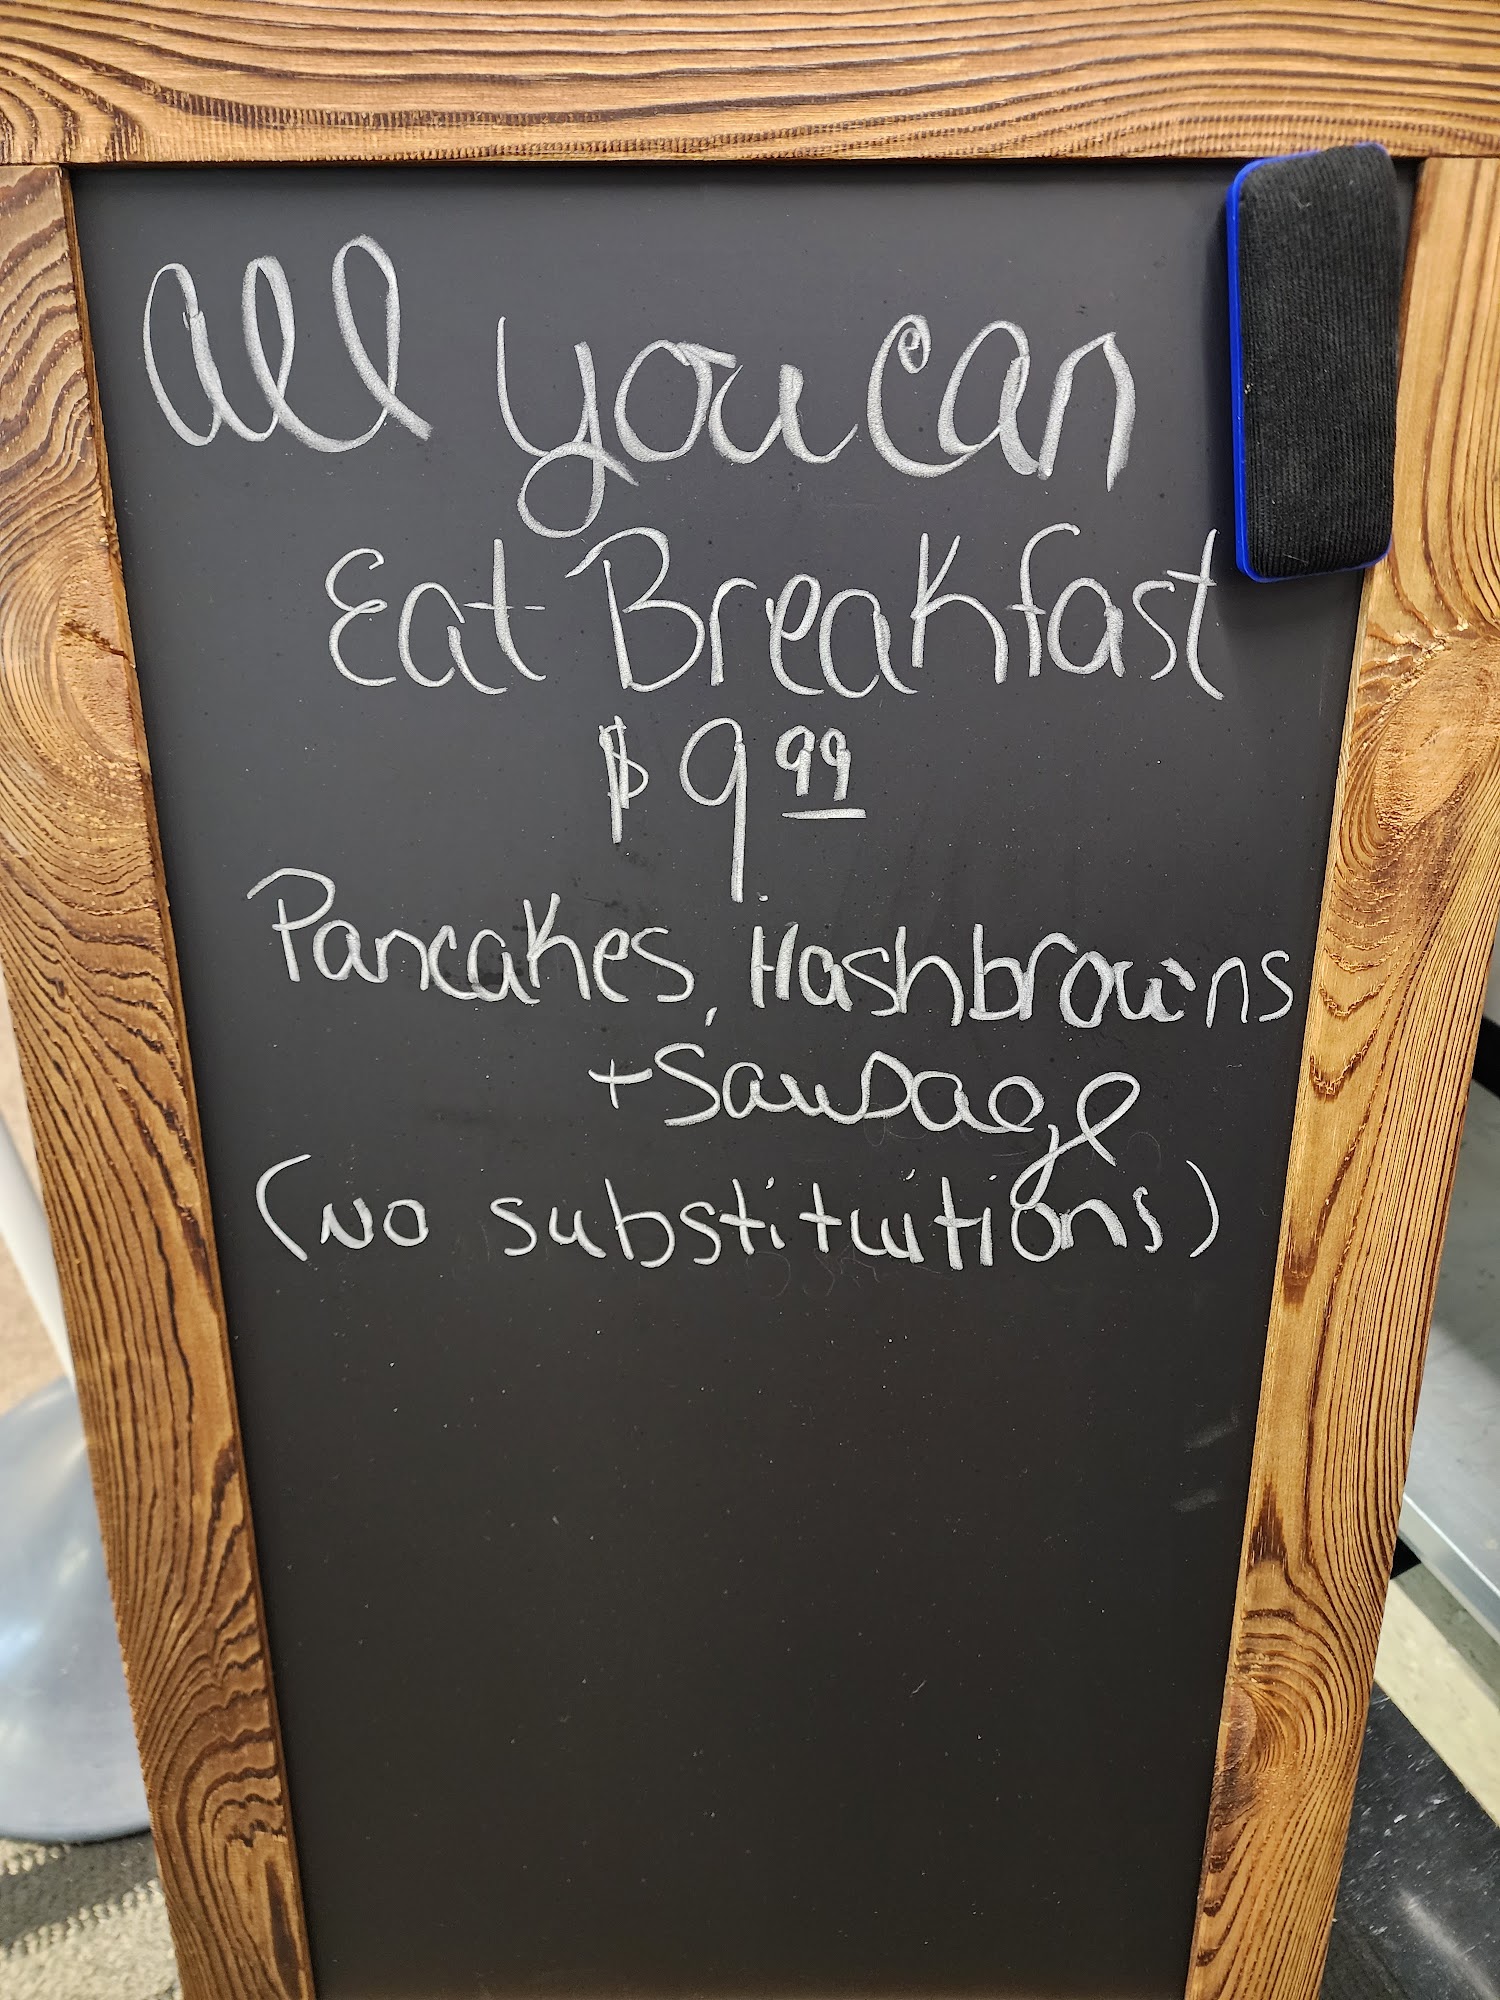 All you can
Eat Breakfast
$9.99
Pancakes, Hashbrowns
+ Sausage
(No substitutions)